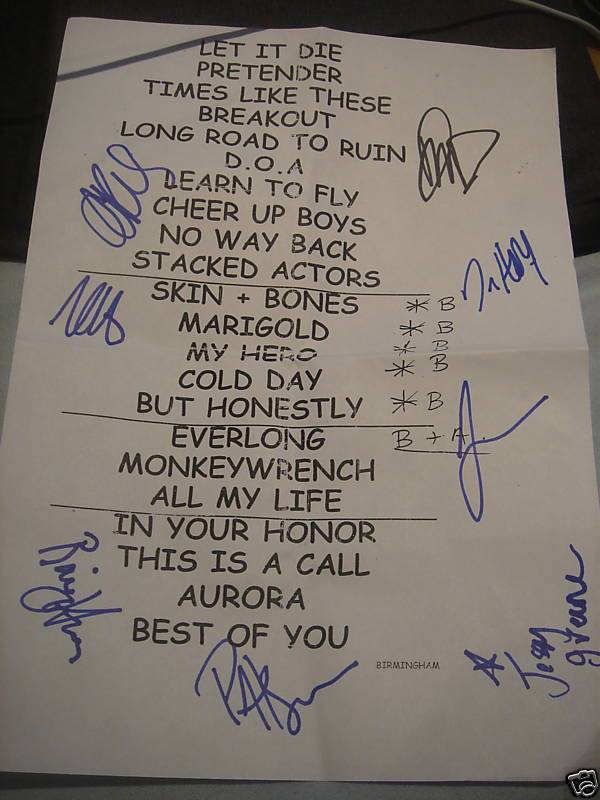 LET IT DIE
PRETENDER
TIMES LIKE THESE
BREAKOUT
LONG ROAD TO RUIN
D.O.A
LEARN TO FLY
CHEER UP BOYS
NO WAY BACK
STACKED ACTORS
SKIN + BONES * B
MARIGOLD * B
MY HERO * B
COLD DAY * B
BUT HONESTLY * B
EVERLONG B + A
MONKEYWRENCH
ALL MY LIFE
IN YOUR HONOR
THIS IS A CALL
AURORA
BEST OF YOU
BIRMINGHAM
Jessy
greene